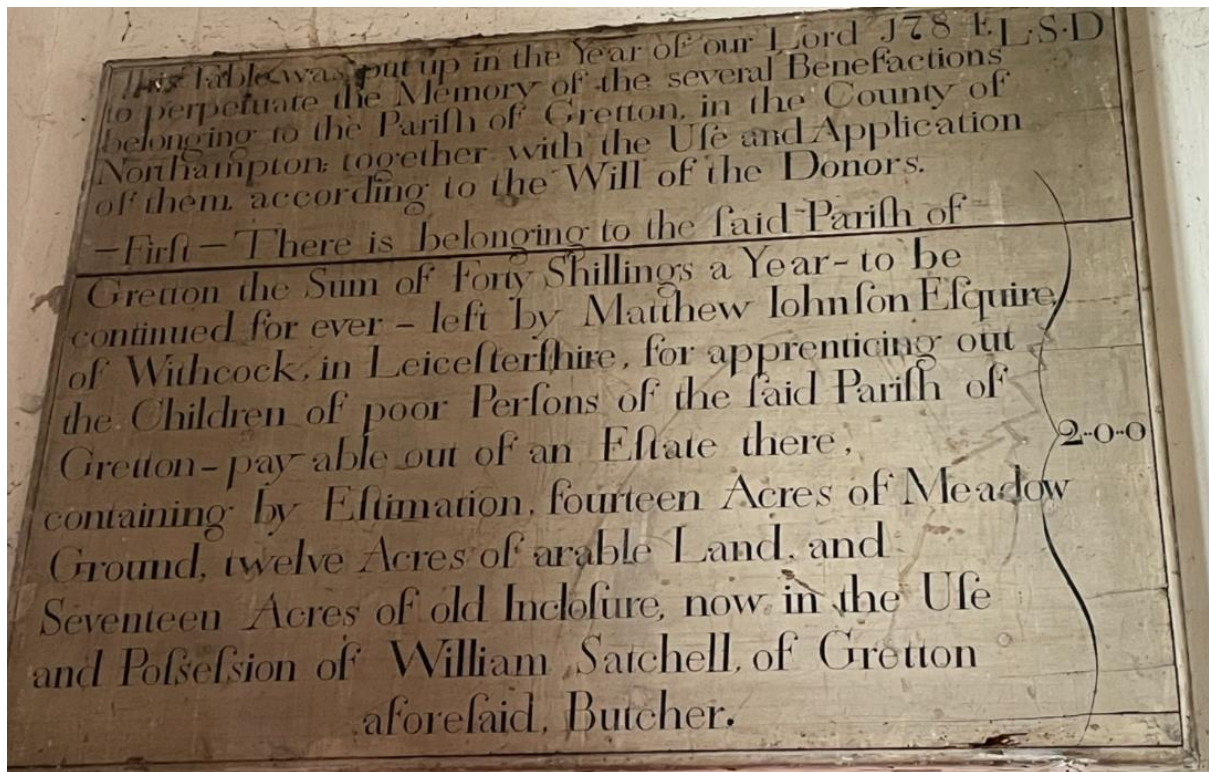 This Table was put up in the Year of our Lord 178 L·S·D
to perpetuate the Memory of the several Benefactions
belonging to the Pariſh of Gretton, in the County of
Northampton; together with the Uſe and Application
of them, according to the Will of the Donors.
—Firſt— There is belonging to the ſaid Pariſh of
Gretton the Sum of Forty Shillings a Year – to be
continued for ever – left by Matthew Iohnſon Eſquire,
of Withcock, in Leiceſterſhire, for apprenticing out
the Children of poor Perſons of the ſaid Pariſh of
Gretton – pay able out of an Eſtate there,
2··0··0
containing by Eſtimation, fourteen Acres of Meadow
Ground, twelve Acres of arable Land, and
Seventeen Acres of old Incloſure, now in the Uſe
and Poſseſsion of William Satchell, of Gretton
aforeſaid, Butcher.